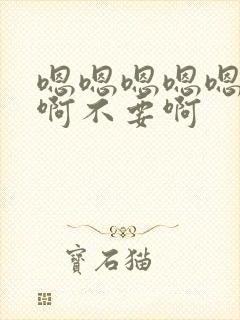 嗯嗯嗯嗯嗯
啊不要啊
寶石猫